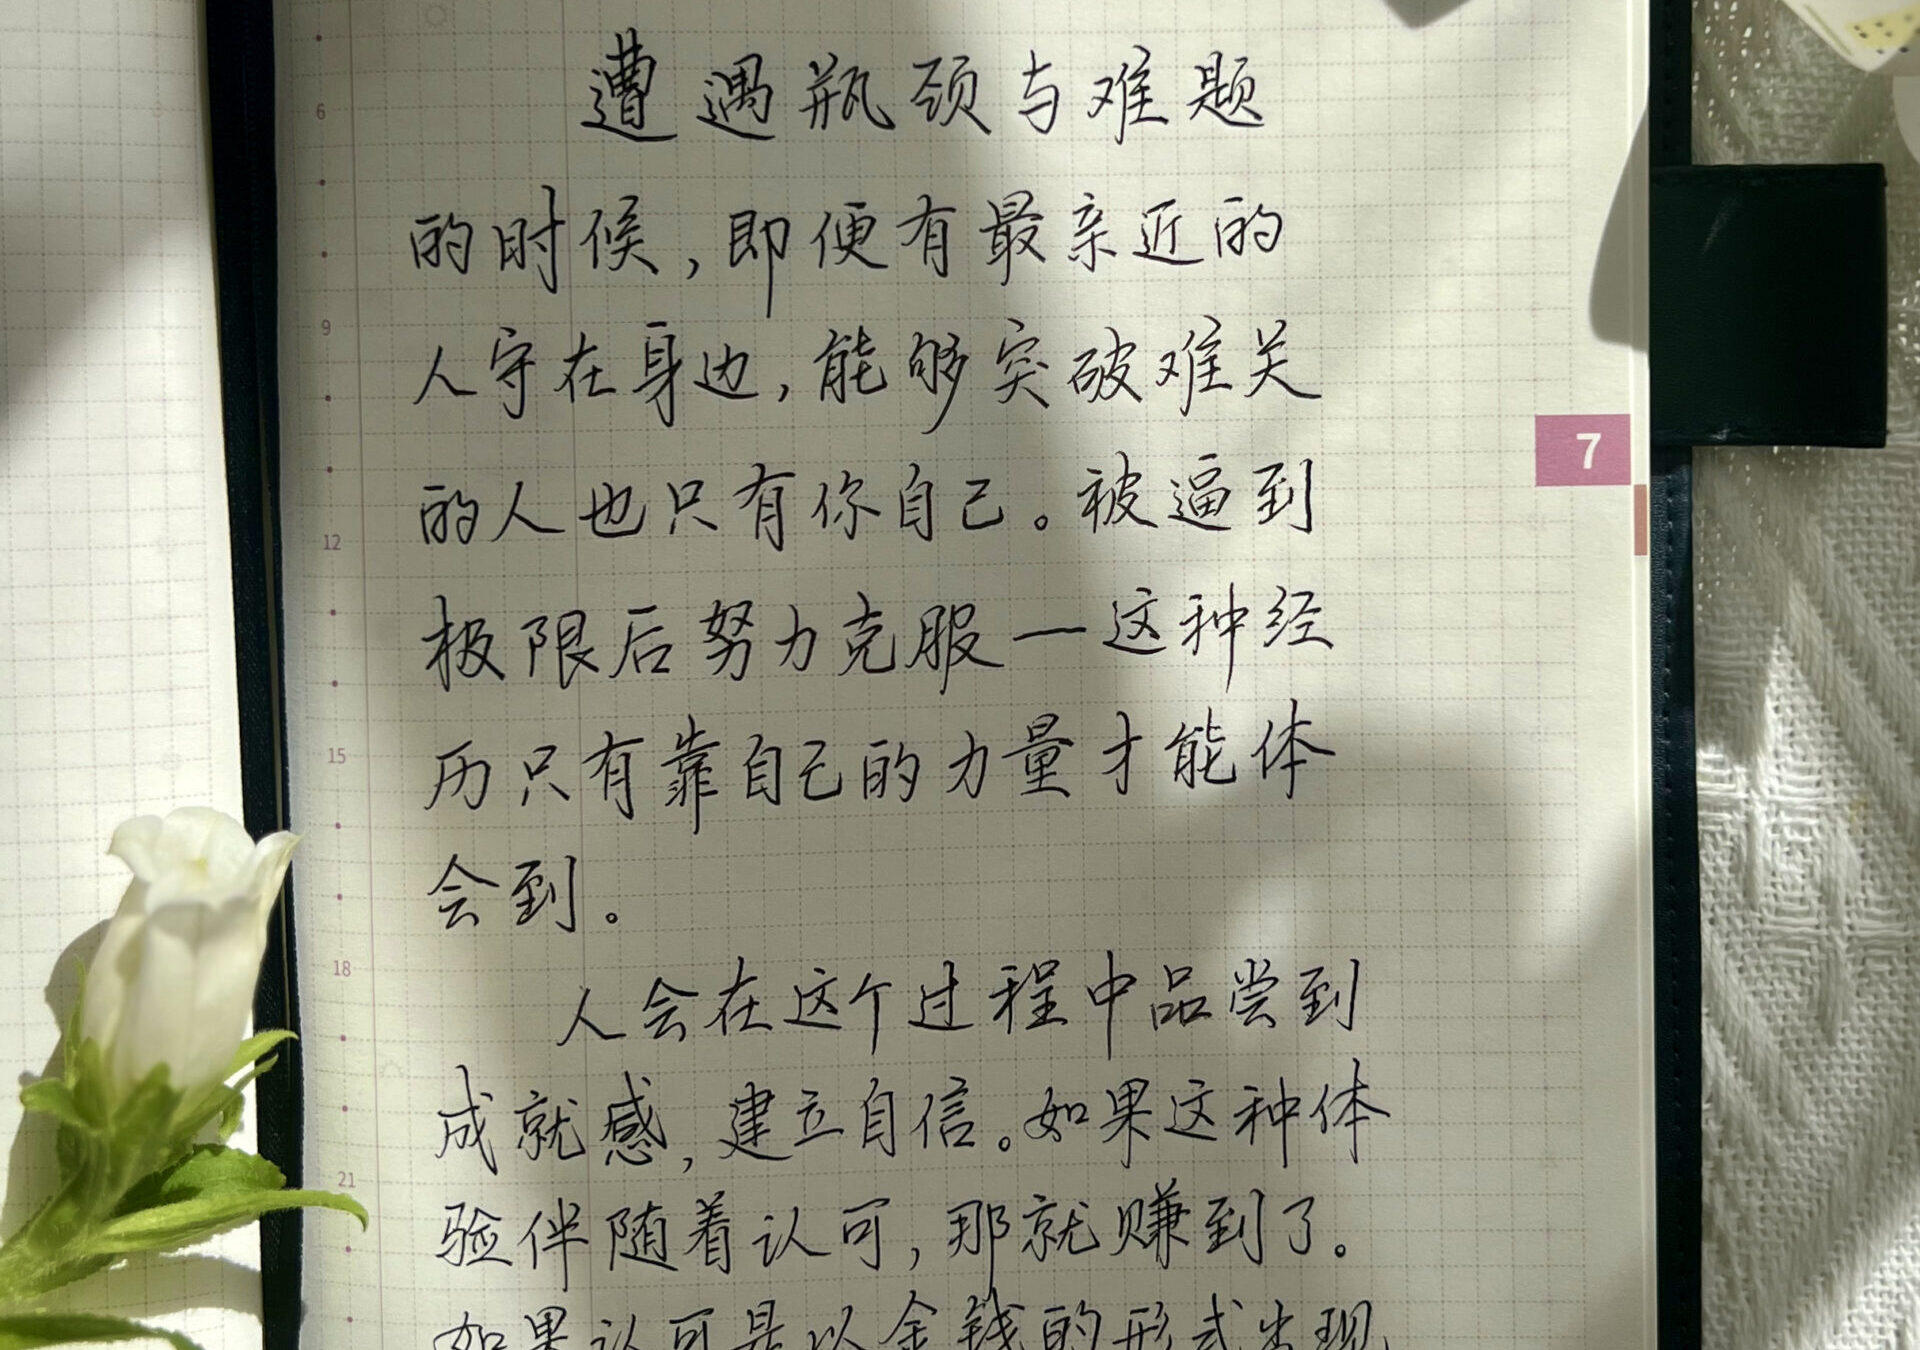 遭遇瓶颈与难题
的时候，即便有最亲近的
人守在身边，能够突破难关
的人也只有你自己。被逼到
极限后努力克服—这种经
历只有靠自己的力量才能体
会到。
人会在这个过程中品尝到
成就感，建立自信。如果这种体
验伴随着认可，那就赚到了。
如果认可是以金钱的形式出现
6
9
12
15
18
21
7